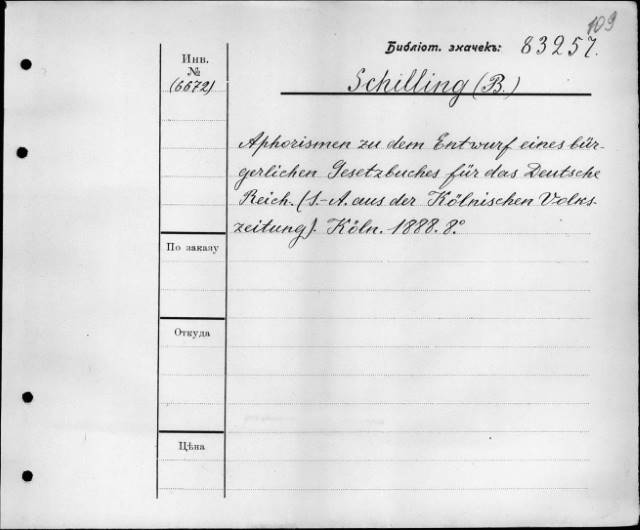 109
Библіот. значекъ: 83257.
Инв.
№
(6672)
Schilling (B.)
Aphorismen zu dem Entwurf eines bür-
gerlichen Gesetzbuches für das Deutsche
Reich. (S.-A. aus der Kölnischen Volks-
zeitung). Köln. 1888. 8.°
По заказу
Откуда
Цѣна